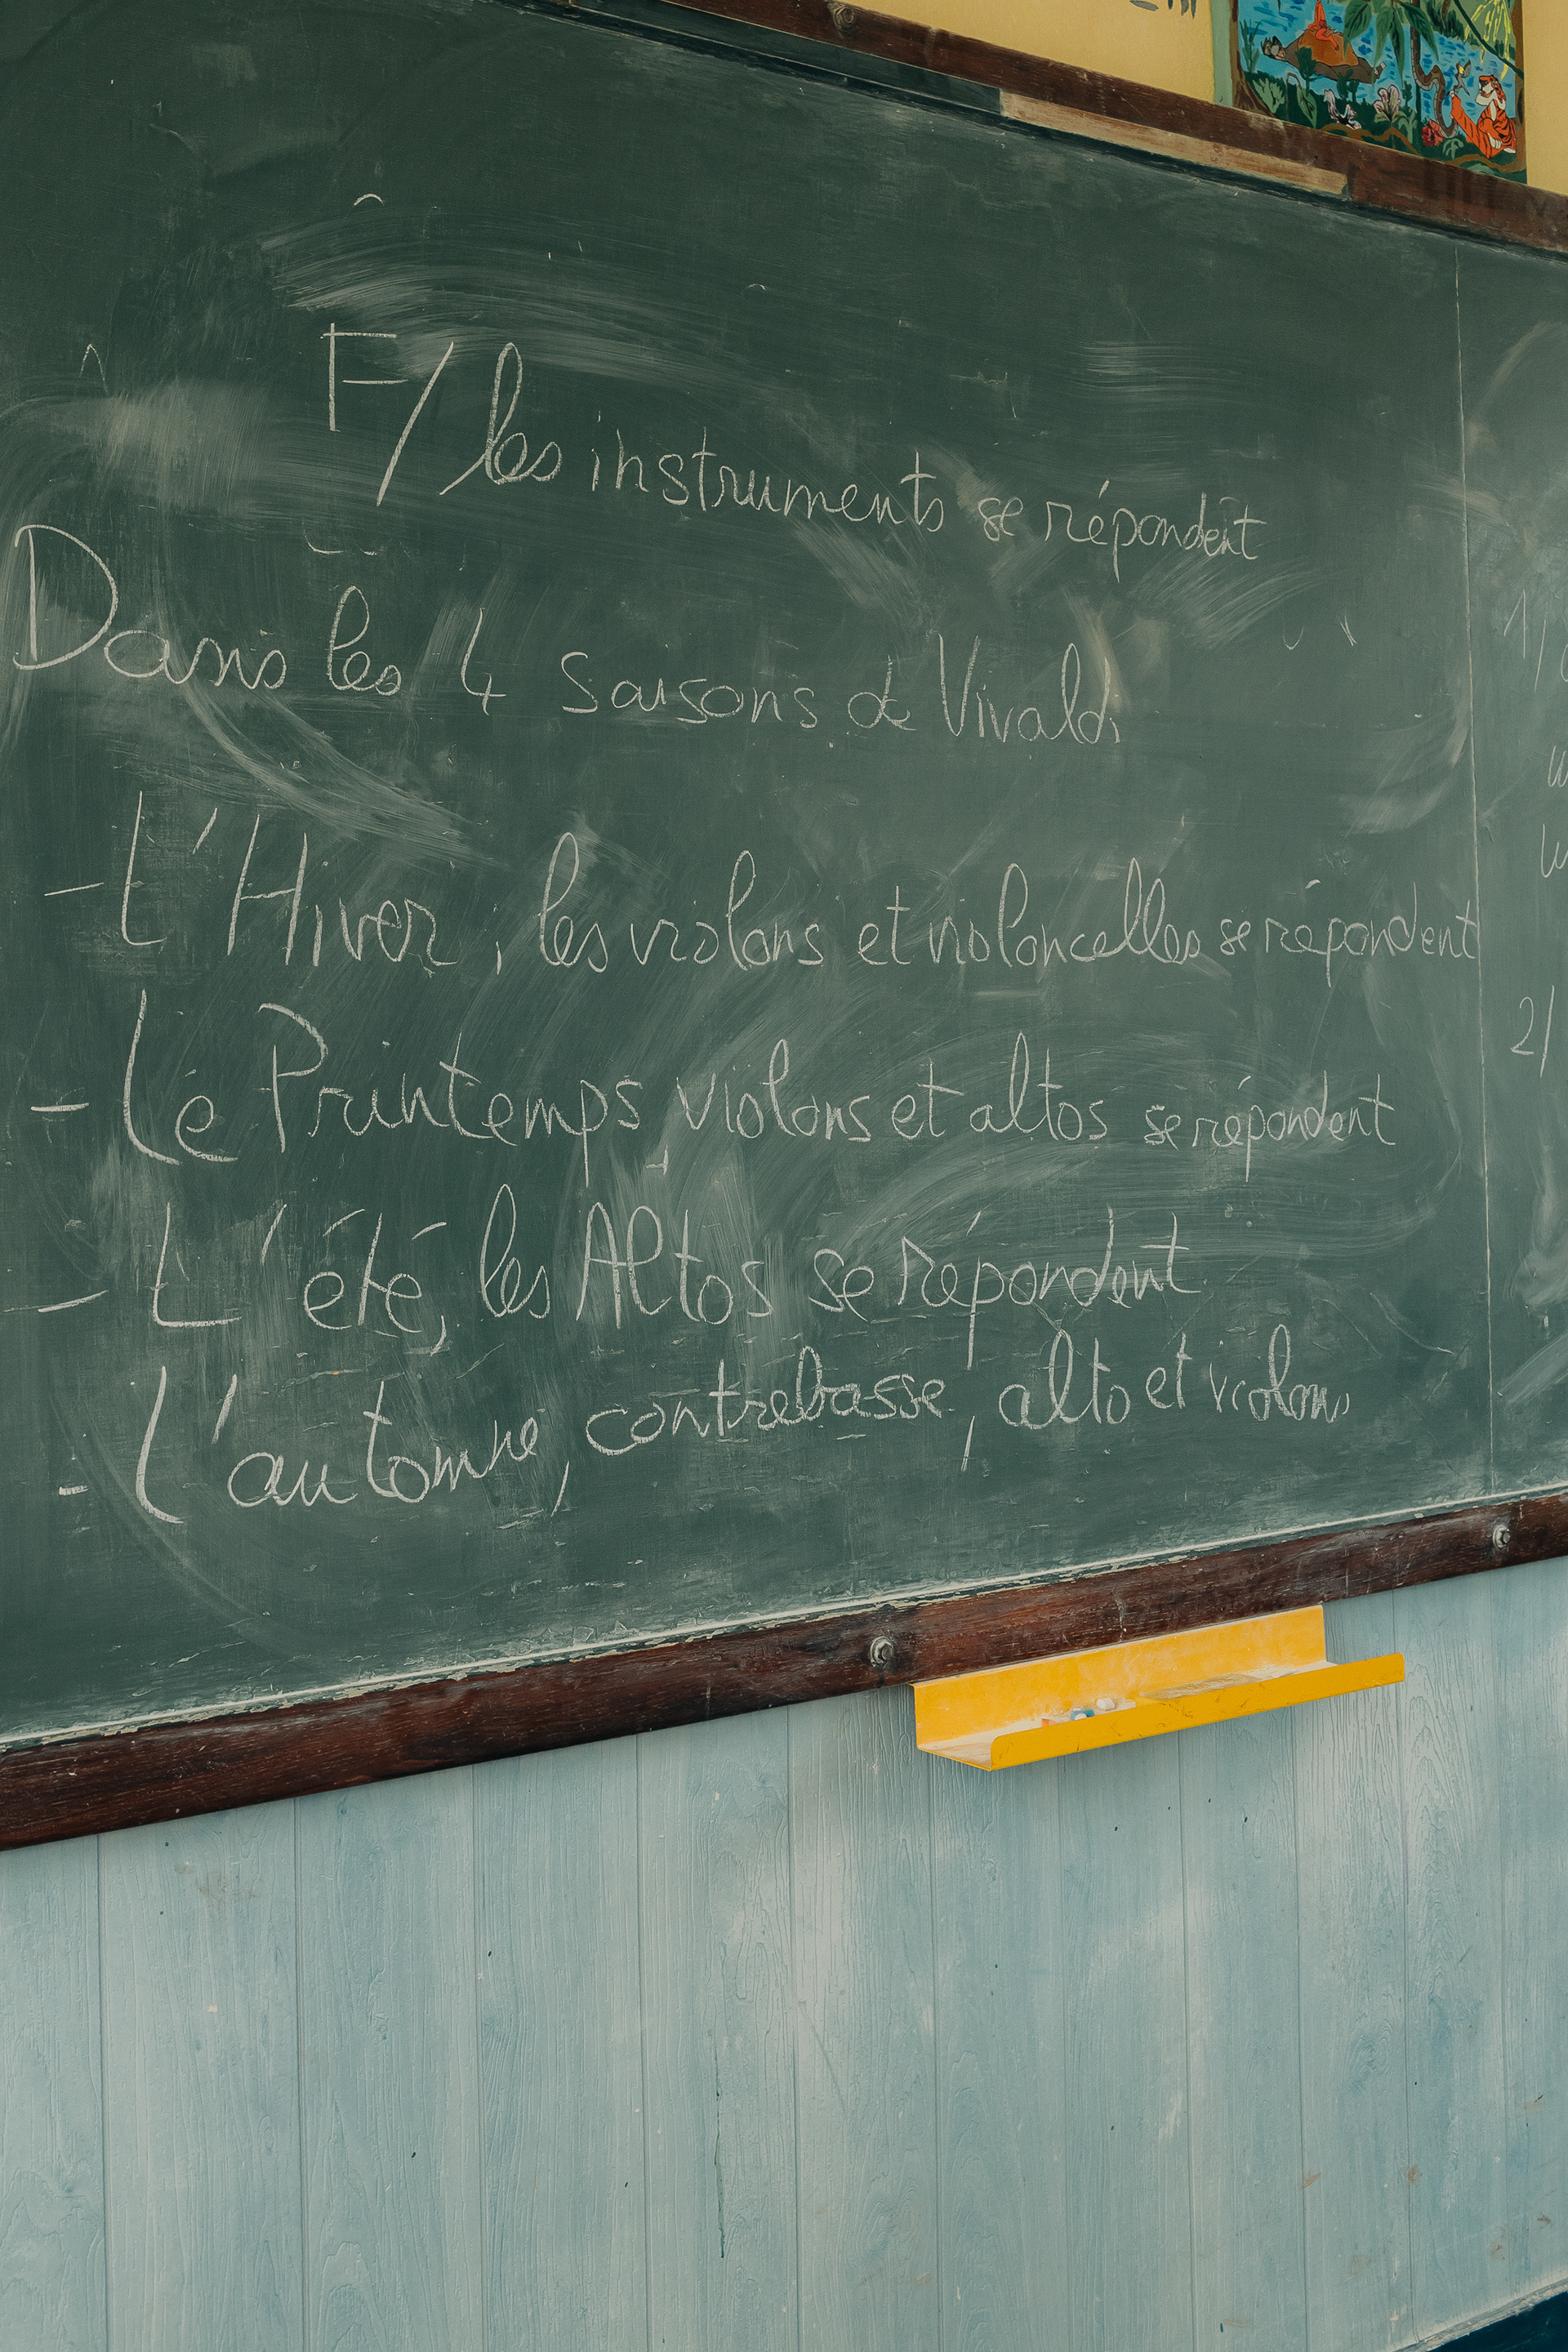 F/ les instruments se répondent
Dans les 4 saisons de Vivaldi
- L'Hiver, les violons et violoncelles se répondent
- Le Printemps violons et altos se répondent
- L'été, les Altos se répondent
- L'automne, contrebasse, alto et violons
1/
2/